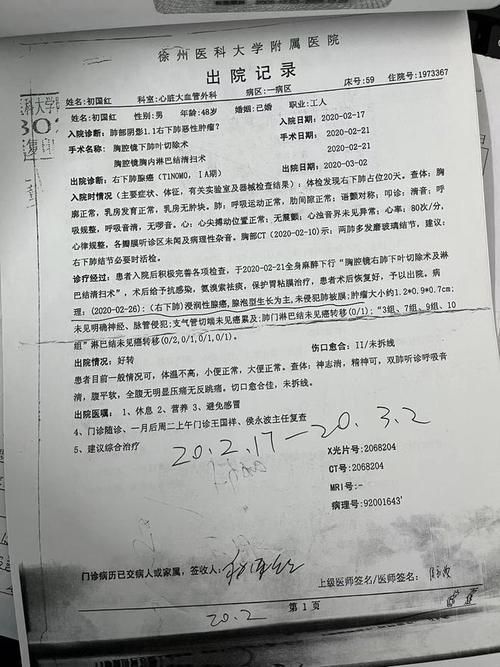 徐州医科大学附属医院
出院记录
姓名:初国红 科室:心脏大血管外科 病区:一病区 床号:59 住院号:1973367
姓名:初国红 性别:男 年龄:48岁 婚姻:已婚 职业:工人
入院诊断:肺部阴影1.1右下肺恶性肿瘤? 入院日期:2020-02-17
手术名称:胸腔镜下肺叶切除术 手术日期:2020-02-21
胸腔镜胸内淋巴结清扫术 2020-02-21
出院诊断:右下肺腺癌(T1N0M0,ⅠA期) 出院日期:2020-03-02
入院时情况(主要症状、体征,有关实验室及器械检查结果):体检发现右下肺占位20天。查体:胸
廓正常,乳房发育正常,乳房无肿块。肺:呼吸运动正常,肋间隙正常;语颤对称;叩诊:清音;呼
吸规整,呼吸音清,无啰音。心:心尖搏动位置正常;无震颤;心浊音界未见异常;心率:80次/分,
心律规整,各瓣膜听诊区未闻及病理性杂音。胸部CT(2020-02-10)示:两肺多发磨玻璃结节,建议:
右下肺结节必要时活检。
诊疗经过:患者入院后积极完善各项检查,于2020-02-21全身麻醉下行“胸腔镜右肺下叶切除术及淋
巴结清扫术”,术后给予抗感染,氨溴索祛痰,保护胃粘膜治疗,患者术后恢复好,予以出院。病
理:(2020-02-26):(右下肺)浸润性腺癌,腺泡型生长为主,未侵犯肺被膜;肿瘤大小约1.2*0.9*0.7cm;
未见明确神经、脉管侵犯;支气管切端未见癌累及;肺门淋巴结未见癌转移(0/1);“3组、7组、9组、10
组”淋巴结未见癌转移(0/2,0/1,0/1,0/1)。
出院情况:好转 伤口愈合:II/未拆线
患者目前一般情况可,体温不高,小便正常,大便正常。查体:神志清,精神可,双肺听诊呼吸音
清,腹平软,全腹无明显压痛无反跳痛。切口愈合佳,未拆线。
出院医嘱:1、休息 2、营养 3、避免感冒
4、门诊随诊、一月后周二上午门诊王国祥、侯永波主任复查
5、建议综合治疗
20.2.17—20.3.2
X光片号:2068204
CT号:2068204
MRI号:-
病理号:92001643
门诊病历已交病人或家属,签收人:
上级医师签名/医师签名:
第1页
20.2